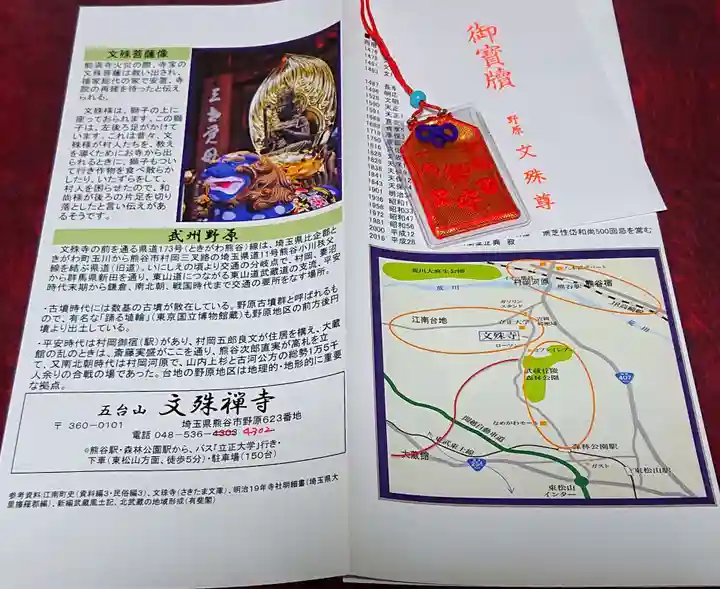 文殊菩薩像
能満寺火災の際、寺宝の
文殊菩薩は救い出され、
檀家総代の家で安置、寺
院の再建を待ったと伝え
られる。
文殊様は、獅子の上に
座っておられます。この獅
子は、左後ろ足がかけて
います。これは昔々、文
殊様が村人たちを、教え
を導くためにお寺から出
られるときに、獅子もつい
て行き作物を食べ散らか
したり、いたずらをして、
村人を困らせたので、和
尚様が後ろの片足を切り
落としたと言い伝えがあ
るそうです。
武州野原
文殊寺の前を通る県道173号(ときがわ熊谷)線は、埼玉県比企郡と
きがわ町玉川から熊谷市村岡三叉路の埼玉県道11号熊谷小川秩父
線を結ぶ県道(旧道)。いにしえの頃より交通の分岐点で、村岡、妻沼
から群馬県新田を通り、東山道につながる東山道武蔵道の支流。平安
時代末期から鎌倉、南北朝、戦国時代まで交通の要所をなす場所。
・古墳時代には数基の古墳が散在している。野原古墳群と呼ばれるも
ので、有名な「踊る埴輪」(東京国立博物館蔵)も野原地区の前方後円
墳より出土している。
・平安時代は村岡御宿(駅)があり、村岡五郎良文が住居を構え、大蔵
館の乱のときは、斎藤実盛がここを通り、熊谷次郎直実が高札を立
て、又南北朝時代は村岡河原で、山内上杉と古河公方の総勢1万5千
人余りの合戦の場であった。台地の野原地区は地理的・地形的に重要
な拠点。
五台山 文殊禅寺
〒360-0101 埼玉県熊谷市野原623番地
電話 048-536-4303 4302
◎熊谷駅・森林公園駅から、バス「立正大学」行き・
下車(東松山方面、徒歩5分)・駐車場(150台)
参考資料:江南町史(資料編3・民俗編3)、文殊寺(さきたま文庫)、明治19年寺社明細書(埼玉県大
里播羅郡編)、新編武蔵風土記、北武蔵の地域形成(有斐閣)
御寶牘
野原 文殊尊
1981 昭和56
2000 平成12
2016 平成28
崇芝性岱和尚500回忌を営む
荒川大麻生公園
荒川
村岡河原
熊谷宿
熊谷駅
JR高崎線
荒川
ガソリン
スタンド
江南台地
立正大学
文殊寺
ローソン
407
武蔵丘陵
森林公園
なめがわモール
関越自動車道
東武東上線
大蔵館
254
森林公園駅
ガスト
東松山駅
東松山
インター